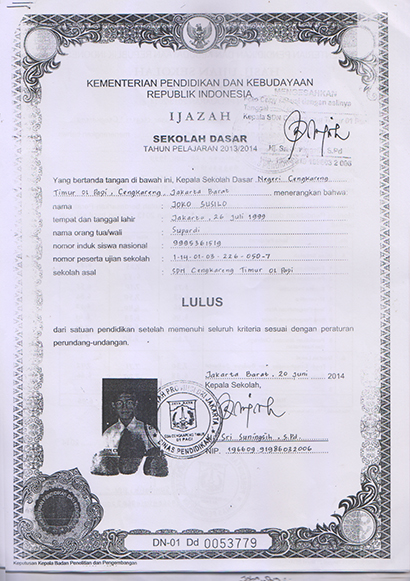 KEMENTERIAN PENDIDIKAN DAN KEBUDAYAAN
REPUBLIK INDONESIA
IJAZAH
SEKOLAH DASAR
TAHUN PELAJARAN 2013/2014
Yang bertanda tangan di bawah ini, Kepala Sekolah Dasar Negeri Cengkareng
Timur 01 Pagi, Cengkareng, Jakarta Barat menerangkan bahwa
nama : JOKO SUSILO
tempat dan tanggal lahir : Jakarta, 26 Juli 1999
nama orang tua/wali : Supardi
nomor induk siswa nasional : 9995361519
nomor peserta ujian sekolah : 1-14-01-03-226-050-7
sekolah asal : SDN Cengkareng Timur 01 Pagi
LULUS
dari satuan pendidikan setelah memenuhi seluruh kriteria sesuai dengan peraturan
perundang-undangan.
Jakarta Barat, 20 Juni 2014
Kepala Sekolah,
Sri Suningsih, S.Pd.
NIP.
DN-01 Dd 0053779
Kepala Badan Penelitian dan Pengembangan